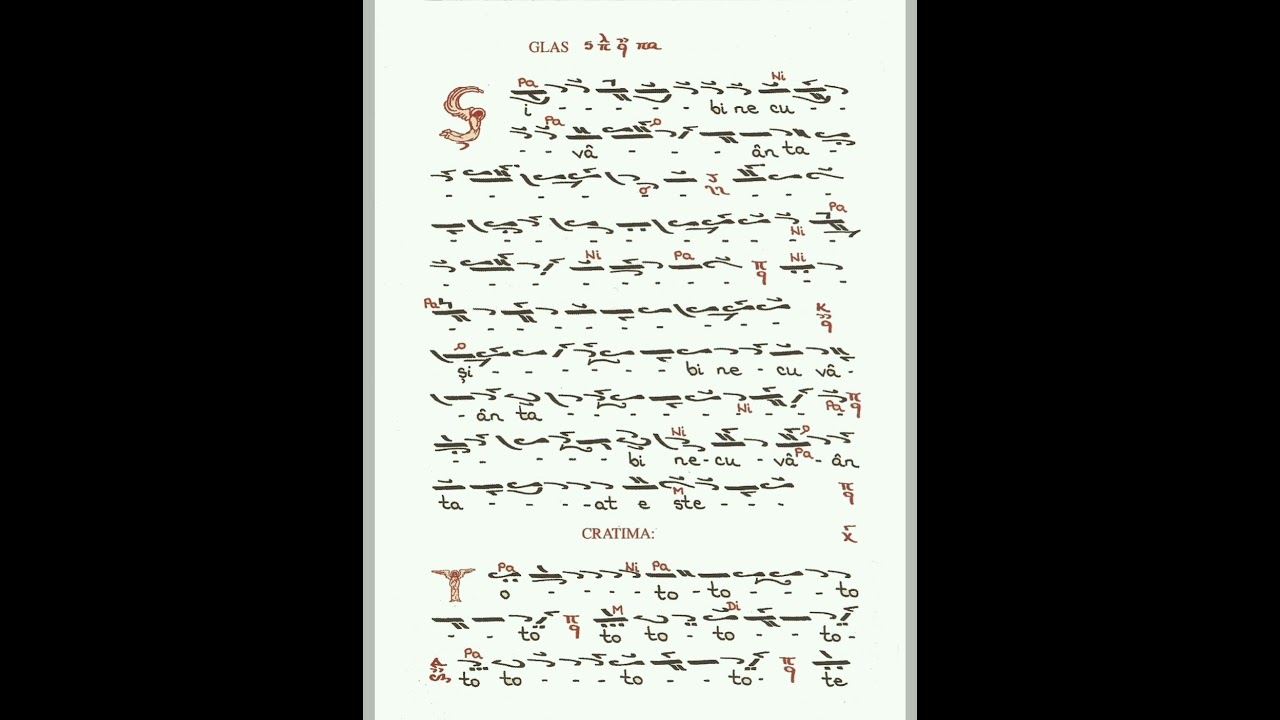 GLAS 5 λ π q πα
Pa Ni
S i - - - - - bi ne cu - -
Pa
- - vâ - - - ân ta -
- - - - - - - - -
Pa
Ni
- - - - - - - - - -
Ni Pa π q Ni
- - - - - - - - -
Pa K q
- - - - - - - - -
și - - - - - bi ne - cu vâ -
π q
- ân ta - - - - - Ni - - Pa -
Ni
- - - - - bi ne - cu - vâ Pa - ân
M π q
ta - - - - at e ste - - -
CRATIMA:
Pa Ni Pa
T o - - - - to - to - - - to
π q M Di
- - to to to - to - - to -
Pa π q
to to - - - to - - to - te